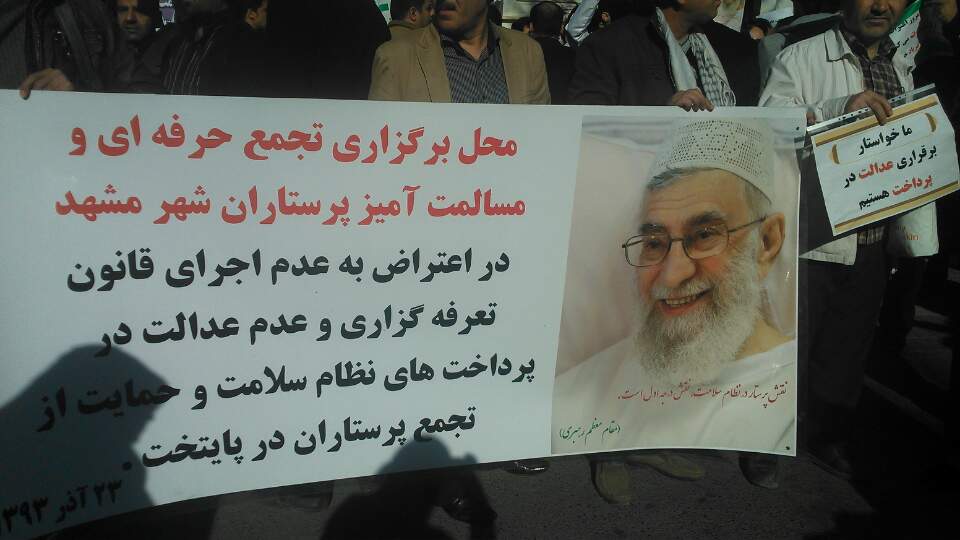 محل برگزاری تجمع حرفه ای و
مسالمت آمیز پرستاران شهر مشهد
در اعتراض به عدم اجرای قانون
تعرفه گزاری و عدم عدالت در
پرداخت های نظام سلامت و حمایت از
تجمع پرستاران در پایتخت .
۲۳ آذر ۱۳۹۳
نقش پرستار در نظام سلامت، نقش درجه اول است.
(مقام معظم رهبری)
ما خواستار
برقراری عدالت در
پرداخت هستیم